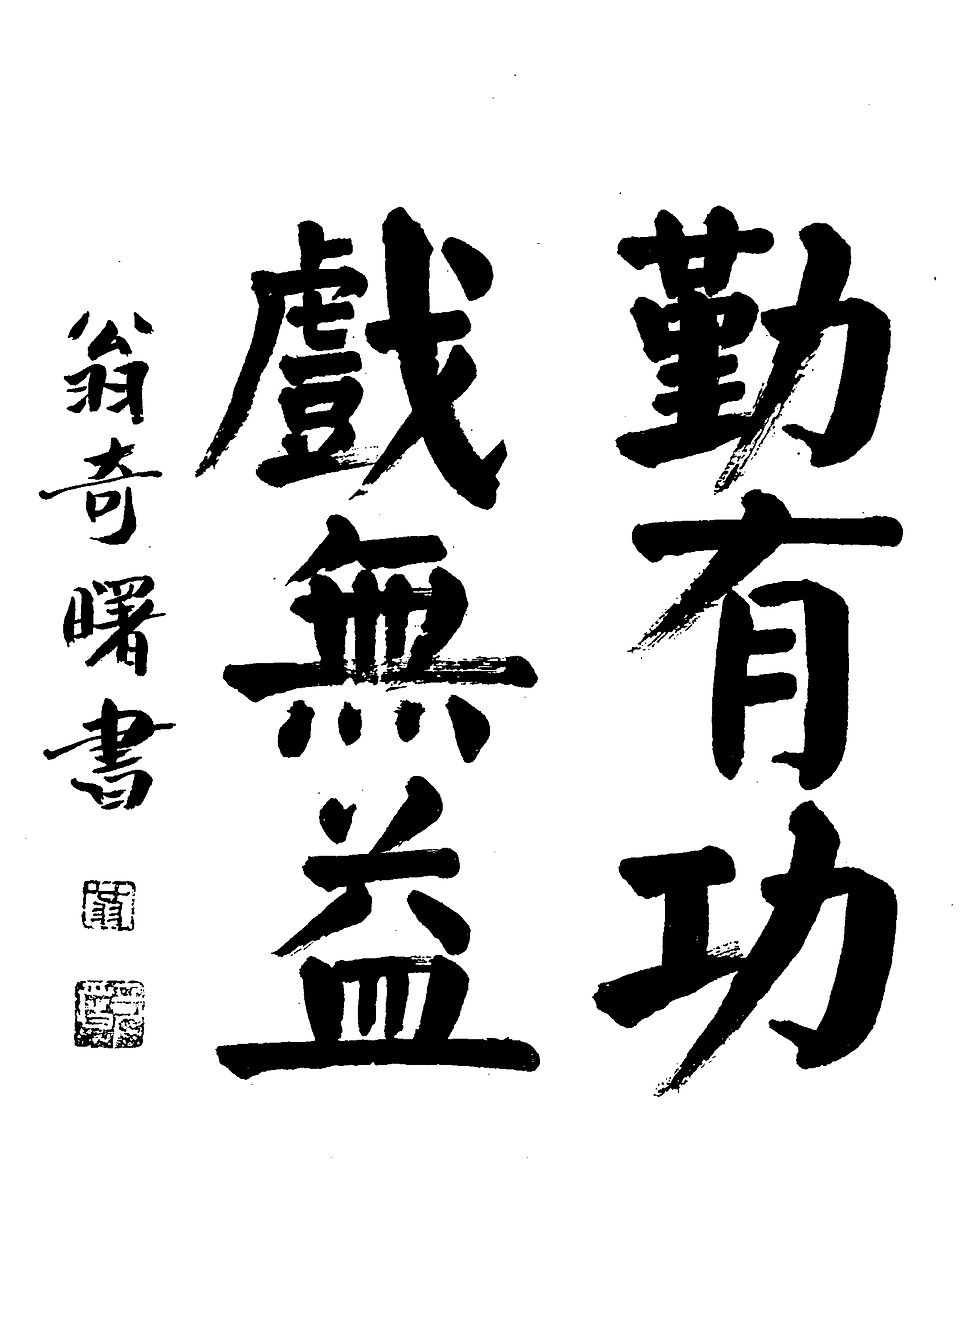 勤有功
戲無益
翁奇曙書